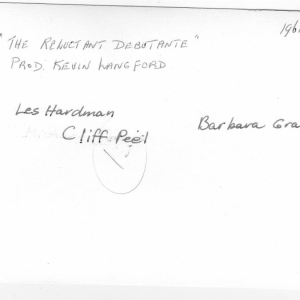 "THE RELUCTANT DEBUTANTE" 196
PROD. KEVIN LANGFORD
Les Hardman
Cliff Peel
Barbara Gra